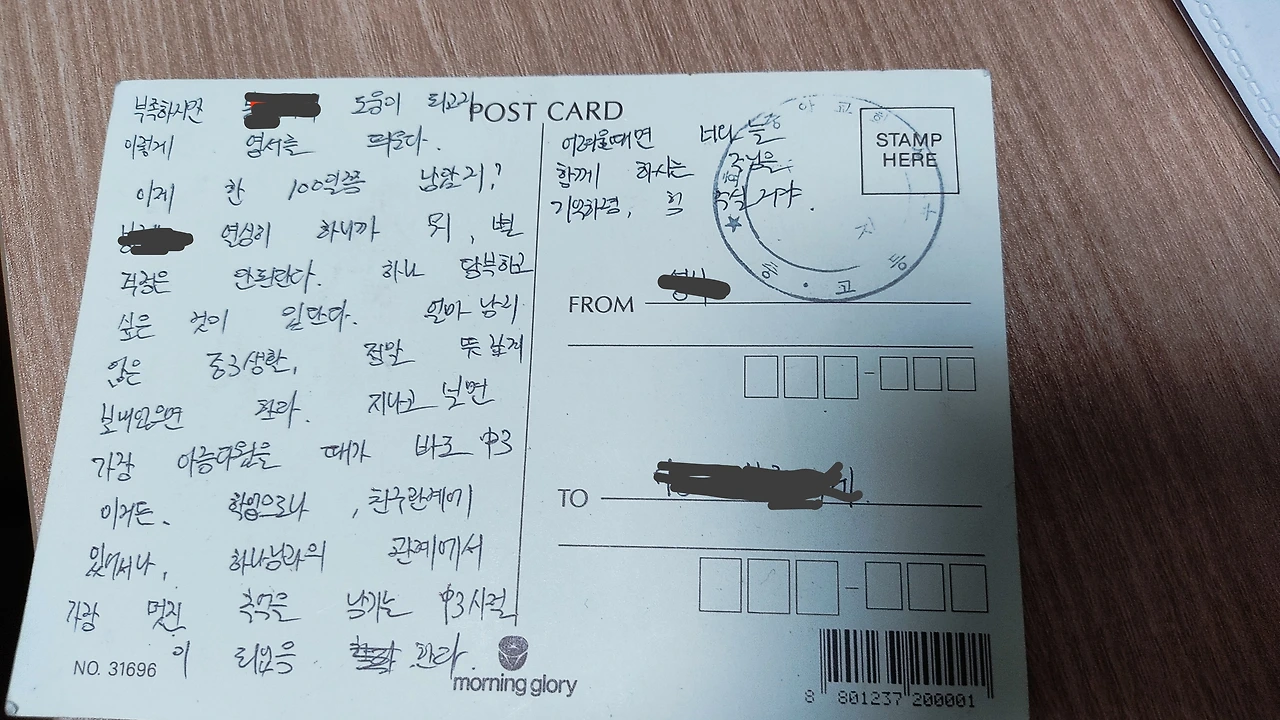 부족하지만 도움이 되고려
이렇게 엽서를 띄운다.
이제 한 100일쯤 남았지?
열심히 하니까 뭐, 별
걱정은 안된단다. 하나 당부하고
싶은 것이 있단다. 얼마 남지
않은 중3생활, 정말 뜻 있게
보내었으면 한다. 지나고 보면
가장 아름다웠을 때가 바로 中3
이거든. 학업으로나, 친구관계에
있어서나, 하나님과의 관계에서
가장 멋진 추억을 남기는 中3시절
이 되었음 한다.
POST CARD
어려울때면 너와 늘
함께 하시는 주님을
기억하렴, 꼭
STAMP
HERE
FROM
TO
NO. 31696
morning glory
8 801237 200001